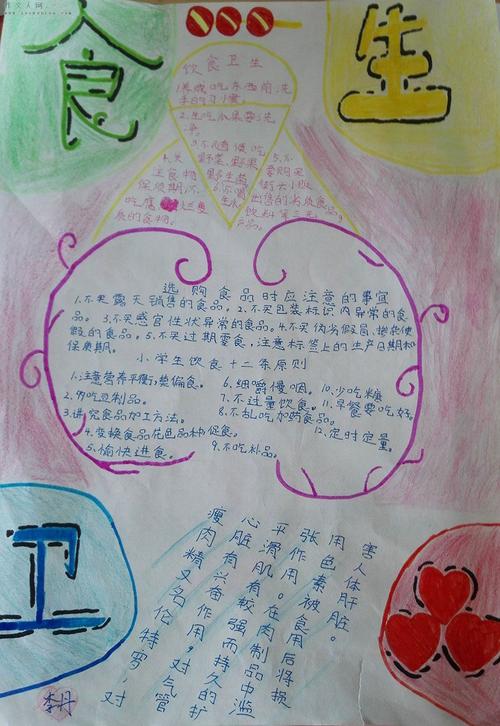 食
生
饮食卫生
1.养成吃东西前洗
手的习惯。
2.生吃瓜果要洗
净。
3.不随便吃
野菜、野果
4.关
注食物
保质期,不
吃腐
质的食物。
选购食品时应注意的事宜
1.不买露天销售的食品。2.不买包装标识内异常的食
品。3.不买感官性状异常的食品。4.不买伪劣假冒、掺杂使
假的食品。5.不买过期零食,注意标签上的生产日期和
保质期。
小学生饮食十二条原则
1.注意营养平衡,禁偏食。
2.常吃豆制品。
3.讲究食品加工方法。
4.变换食品花色品种促食。
5.愉快进食。
6.细嚼慢咽。
7.不过量饮食。
8.不乱吃加药食品。
9.不吃补品。
10.少吃糖
11.早餐要吃好
12.定时定量。
卫
瘦肉精又名伦特罗,对
心脏有兴奋作用,对气管
平滑肌有较强而持久的扩
张作用。在肉制品中滥
用色素被食用后将损
害人体肝脏。
李丹